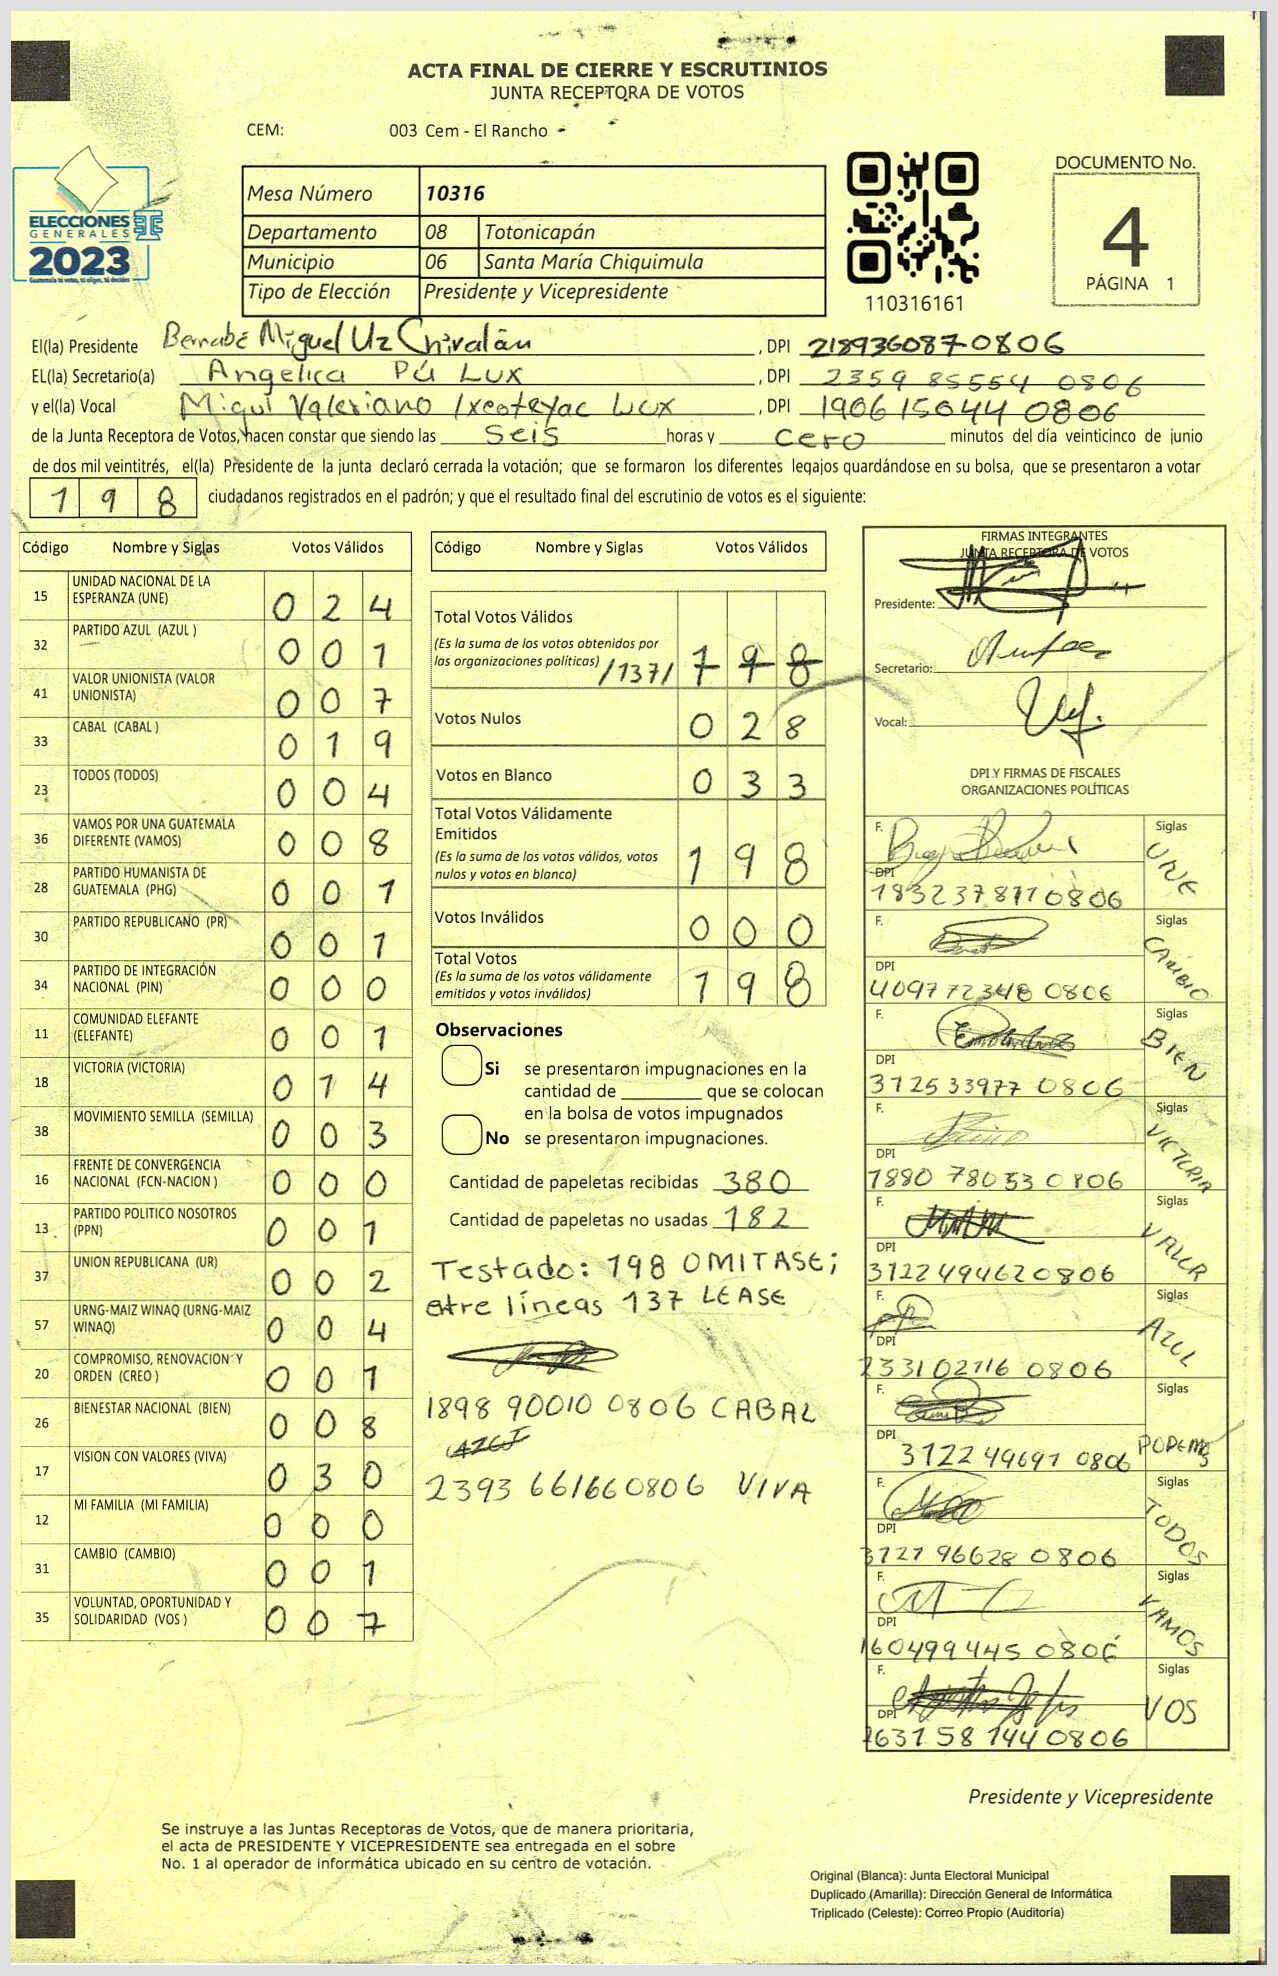 ACTA FINAL DE CIERRE Y ESCRUTINIOS
JUNTA RECEPTORA DE VOTOS
CEM: 003 Cem - El Rancho
ELECCIONES
GENERALES
2023
Mesa Número 10316
Departamento 08 Totonicapán
Municipio 06 Santa María Chiquimula
Tipo de Elección Presidente y Vicepresidente
110316161
DOCUMENTO No.
4
PÁGINA 1
El(la) Presidente Bernabé Miguel Uz Chivalán , DPI 218936087 0806
EL(la) Secretario(a) Angelica Pú Lux , DPI 2359 85554 0806
y el(la) Vocal Miqui Valeriano Ixcoteyac Lux , DPI 1906 15044 0806
de la Junta Receptora de Votos, hacen constar que siendo las seis horas y cero minutos del día veinticinco de junio
de dos mil veintitrés, el(la) Presidente de la junta declaró cerrada la votación; que se formaron los diferentes legajos quardándose en su bolsa, que se presentaron a votar
198 ciudadanos registrados en el padrón; y que el resultado final del escrutinio de votos es el siguiente:
Código Nombre y Siglas Votos Válidos
15 UNIDAD NACIONAL DE LA ESPERANZA (UNE) 024
32 PARTIDO AZUL (AZUL ) 001
41 VALOR UNIONISTA (VALOR UNIONISTA) 007
33 CABAL (CABAL ) 019
23 TODOS (TODOS) 004
36 VAMOS POR UNA GUATEMALA DIFERENTE (VAMOS) 008
28 PARTIDO HUMANISTA DE GUATEMALA (PHG) 001
30 PARTIDO REPUBLICANO (PR) 001
34 PARTIDO DE INTEGRACIÓN NACIONAL (PIN) 000
11 COMUNIDAD ELEFANTE (ELEFANTE) 001
18 VICTORIA (VICTORIA) 014
38 MOVIMIENTO SEMILLA (SEMILLA) 003
16 FRENTE DE CONVERGENCIA NACIONAL (FCN-NACION ) 000
13 PARTIDO POLITICO NOSOTROS (PPN) 001
37 UNION REPUBLICANA (UR) 002
57 URNG-MAIZ WINAQ (URNG-MAIZ WINAQ) 004
20 COMPROMISO, RENOVACION Y ORDEN (CREO ) 001
26 BIENESTAR NACIONAL (BIEN) 008
17 VISION CON VALORES (VIVA) 030
12 MI FAMILIA (MI FAMILIA) 000
31 CAMBIO (CAMBIO) 001
35 VOLUNTAD, OPORTUNIDAD Y SOLIDARIDAD (VOS ) 007
Código Nombre y Siglas Votos Válidos
Total Votos Válidos
(Es la suma de los votos obtenidos por
las organizaciones políticas) /137/ 198
Votos Nulos 028
Votos en Blanco 033
Total Votos Válidamente
Emitidos
(Es la suma de los votos válidos, votos
nulos y votos en blanco) 198
Votos Inválidos 000
Total Votos
(Es la suma de los votos válidamente
emitidos y votos inválidos) 198
Observaciones
Si se presentaron impugnaciones en la
cantidad de ________ que se colocan
en la bolsa de votos impugnados
No se presentaron impugnaciones.
Cantidad de papeletas recibidas 380
Cantidad de papeletas no usadas 182
Testado: 198 OMITASE;
etre líneas 137 LEASE
1898 90010 0806 CABAL
2393 66166 0806 VIVA
FIRMAS INTEGRANTES
JUNTA RECEPTORA DE VOTOS
Presidente:
Secretario:
Vocal:
DPI Y FIRMAS DE FISCALES
ORGANIZACIONES POLÍTICAS
F. Siglas UNE
DPI 1832378110806
F. Siglas CAMBIO
DPI 409772348 0806
F. Siglas BIEN
DPI 312533977 0806
F. Siglas VICTORIA
DPI 1880 78053 0806
F. Siglas VALOR
DPI 312249462 0806
F. Siglas AZUL
DPI 233102116 0806
F. Siglas PODEMOS
DPI 3122 49691 0806
F. Siglas TODOS
DPI 3121 96628 0806
F. Siglas VAMOS
DPI 160499445 0806
F. Siglas VOS
DPI 1631 58 144 0806
Presidente y Vicepresidente
Se instruye a las Juntas Receptoras de Votos, que de manera prioritaria,
el acta de PRESIDENTE Y VICEPRESIDENTE sea entregada en el sobre
No. 1 al operador de informática ubicado en su centro de votación.
Original (Blanca): Junta Electoral Municipal
Duplicado (Amarilla): Dirección General de Informática
Triplicado (Celeste): Correo Propio (Auditoría)